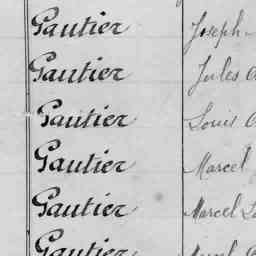 Gautier Joseph
Gautier Jules
Gautier Louis
Gautier Marcel
Gautier Marcel
Gautier